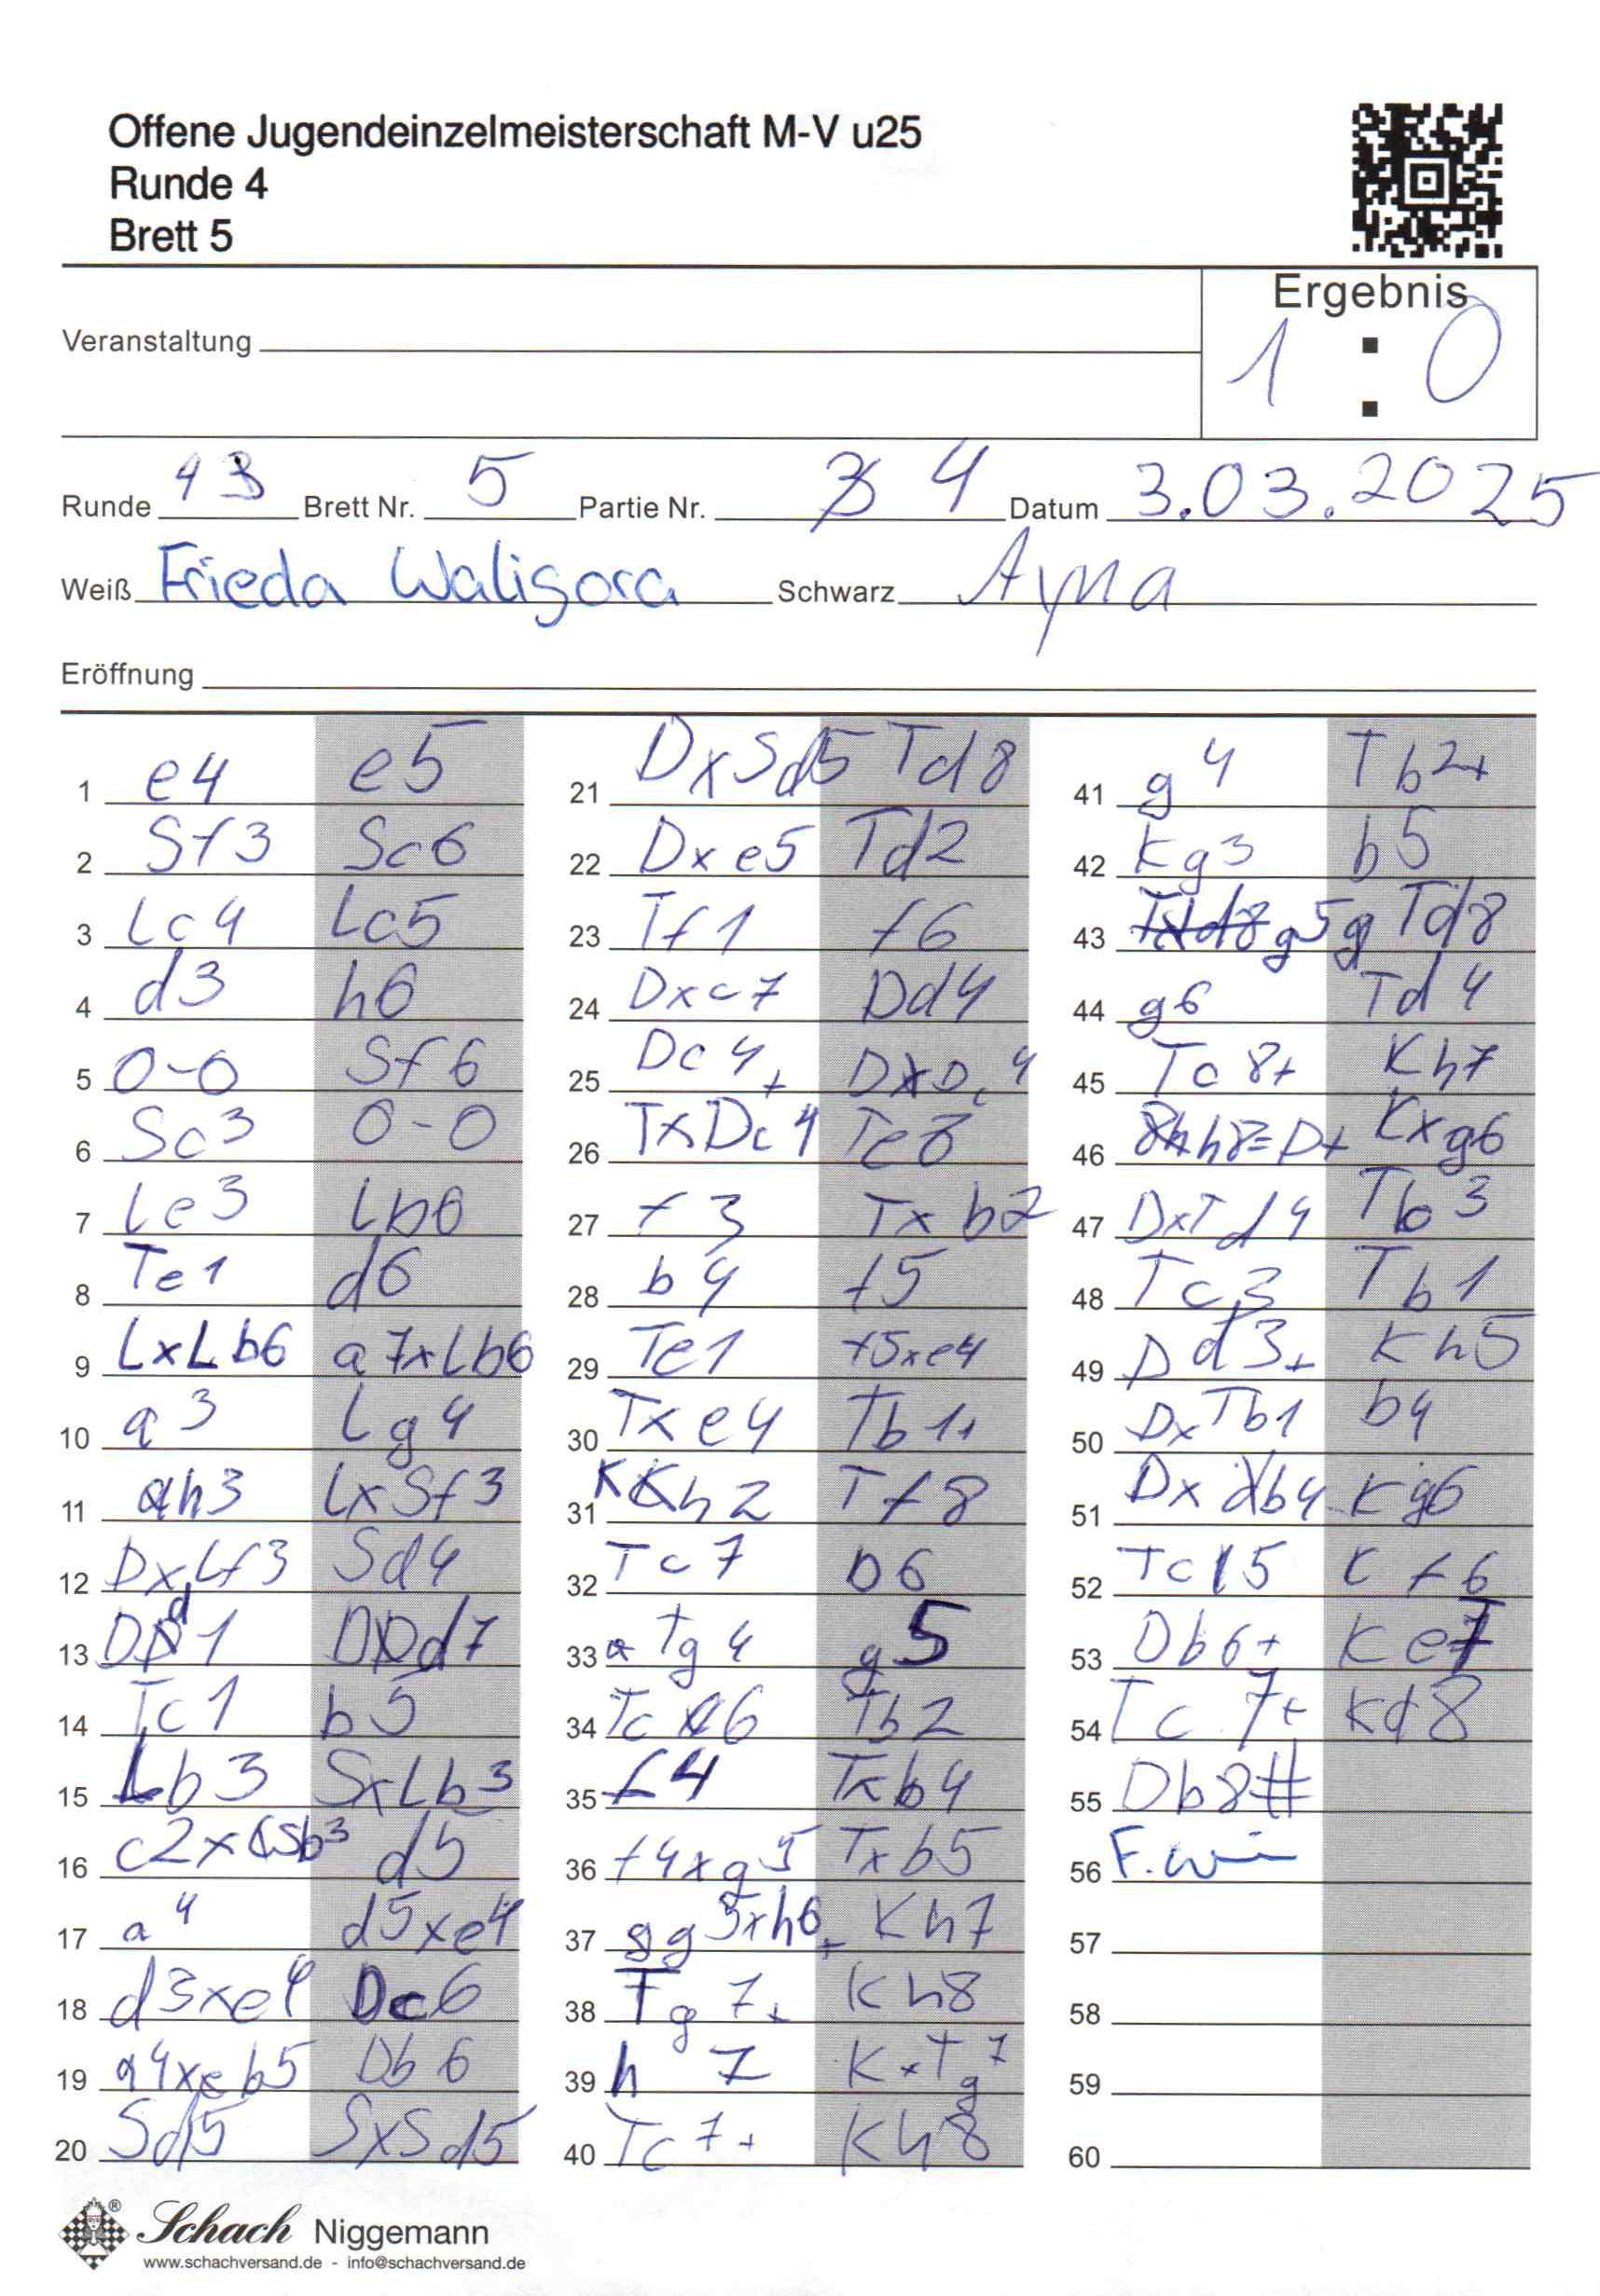 Offene Jugendeinzelmeisterschaft M-V u25
Runde 4
Brett 5
Ergebnis
Veranstaltung 1 : 0
Runde 43 Brett Nr. 5 Partie Nr. 4 Datum 3.03.2025
Weiß Frieda Waligora Schwarz Ayna
Eröffnung
1 e4 e5
2 Sf3 Sc6
3 Lc4 Lc5
4 d3 h6
5 0-0 Sf6
6 Sc3 0-0
7 Le3 Lb6
8 Te1 d6
9 LxLb6 a7xLb6
10 a3 Lg4
11 h3 LxSf3
12 DxLf3 Sd4
13 Dd1 Dd7
14 Tc1 b5
15 Lb3 SxLb3
16 c2xSb3 d5
17 a4 d5xe4
18 d3xe4 Dc6
19 a4xb5 Db6
20 Sd5 SxSd5
21 DxSd5 Td8
22 Dxe5 Td2
23 Tf1 f6
24 Dxc7 Dd4
25 Dc4+ DxDc4
26 TxDc4 Te8
27 f3 Txb2
28 b4 f5
29 Te1 f5xe4
30 Txe4 Tb1+
31 Kh2 Tf8
32 Tc7 b6
33 Tg4 g5
34 Tc6 Tb2
35 f4 Txb4
36 f4xg5 Txb5
37 g5xh6+ Kh7
38 Tg7+ Kh8
39 h7 KxTg7
40 Tc7+ Kh8
41 g4 Tb2+
42 Kg3 b5
43 g5 Td8
44 g6 Td4
45 Tc8+ Kh7
46 h8=D+ Kxg6
47 DxTd4 Tb3
48 Tc3 Tb1
49 Dd3+ Kh5
50 DxTb1 b4
51 Dxb4 Kg6
52 Tc5 Kf6
53 Db6+ Ke7
54 Tc7+ Kd8
55 Db8#
56
57
58
59
60
Schach Niggemann
www.schachversand.de - info@schachversand.de